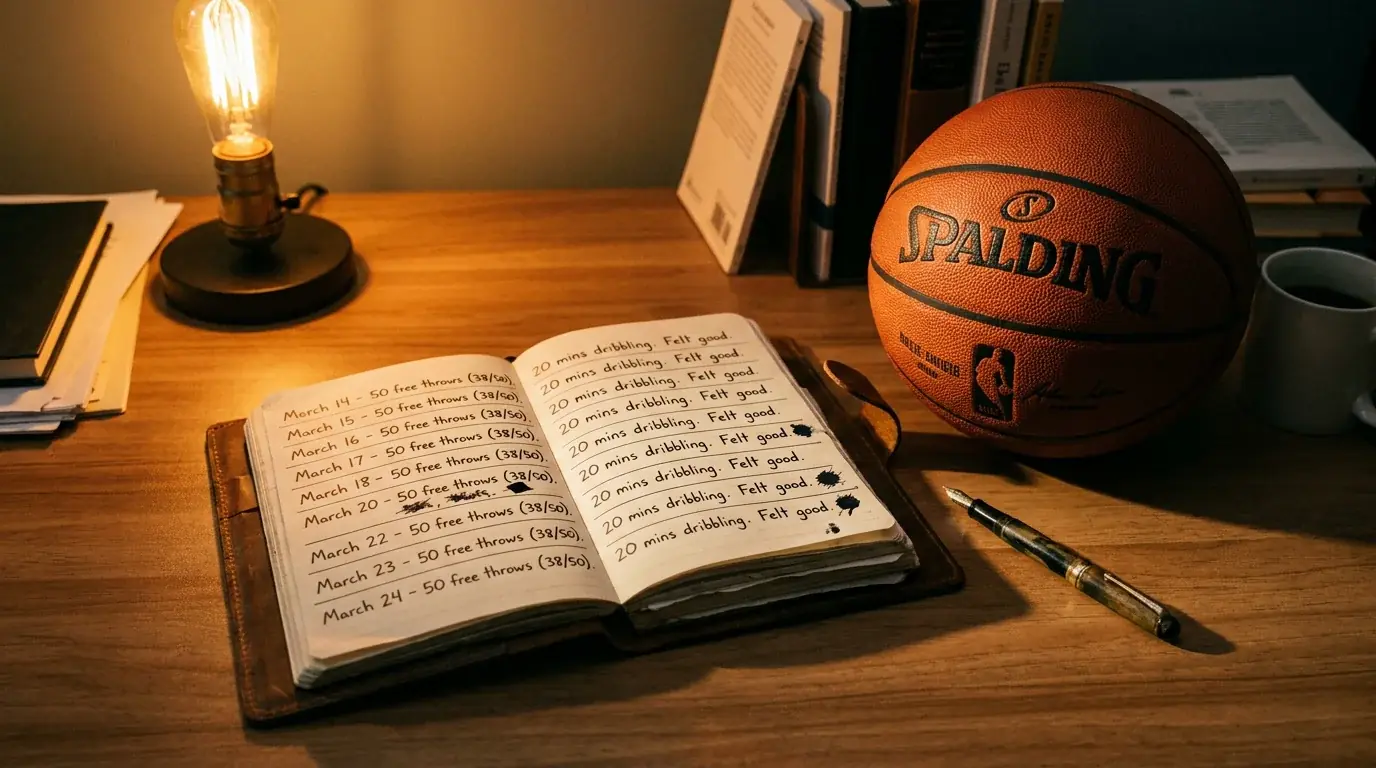 March 14 - 50 free throws (38/50).
March 15 - 50 free throws (38/50).
March 16 - 50 free throws (38/50).
March 17 - 50 free throws (38/50).
March 18 - 50 free throws (38/50).
March 20 - 50 free throws (38/50).
March 22 - 50 free throws (38/50).
March 23 - 50 free throws (38/50).
March 24 - 50 free throws (38/50).
20 mins dribbling. Felt good.
20 mins dribbling. Felt good.
20 mins dribbling. Felt good.
20 mins dribbling. Felt good.
20 mins dribbling. Felt good.
20 mins dribbling. Felt good.
20 mins dribbling. Felt good.
20 mins dribbling. Felt good.
20 mins dribbling. Felt good.
S
SPALDING